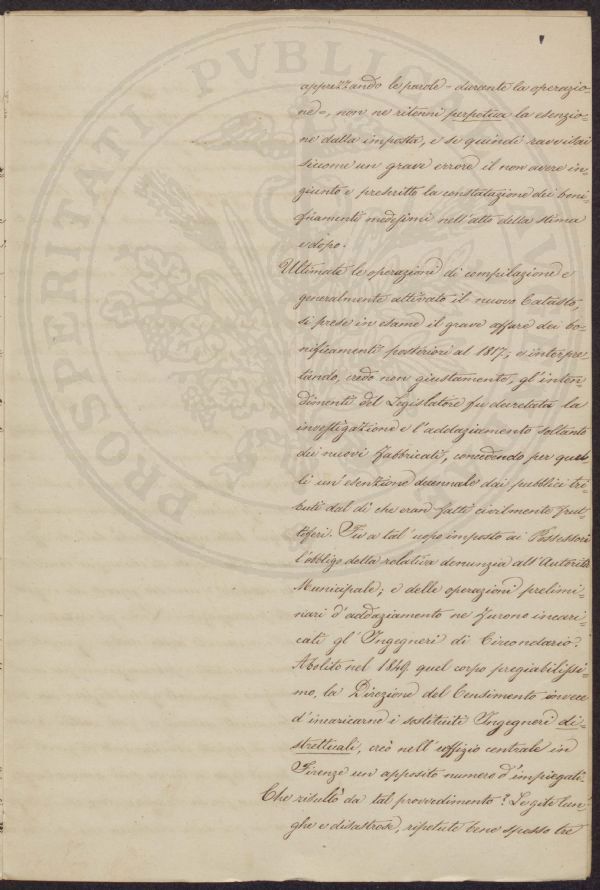 apprezzando le parole = durante la operazio=
ne =, non ne ritenni perpetua la esenzio=
ne dalla imposta, e se quindi ravvisai
siccome un grave errore il non avere in=
giunto e prescritto la constatazione dei boni=
ficamenti medesimi nell'atto della stima
e dopo.
Ultimate le operazioni di compilazione e
generalmente attivato il nuovo Catasto,
si prese in esame il grave affare dei bo=
nificamenti posteriori al 1817; e interpre=
tando, credo non giustamente, gl'inten
dimenti del Legislatore fu decretata la
investigazione e l'addaziamento soltanto
dei nuovi Fabbricati, concedendo per quel=
li un'esenzione decennale dai pubblici tri=
buti dal dì che eran fatti civilmente frut=
tiferi. Fu a tal'uopo imposto ai Possessori
l'obbligo della relativa denunzia all'Autorità
Municipale; e delle operazioni prelimi=
nari d'addaziamento ne furono incari=
cati gl'Ingegneri di Circondario.
Abolito nel 1849 quel corpo pregiabilissi=
mo, la Direzione del Censimento invece
d'incaricarne i sostituiti Ingegneri di=
strettuali, creò nell'uffizio centrale in
Firenze un apposito numero d'impiegati.
Che risultò da tal provvedimento? Le gite lun=
ghe e disastrose, ripetute bene spesso tre
PROSPERITATI PVBLICAE